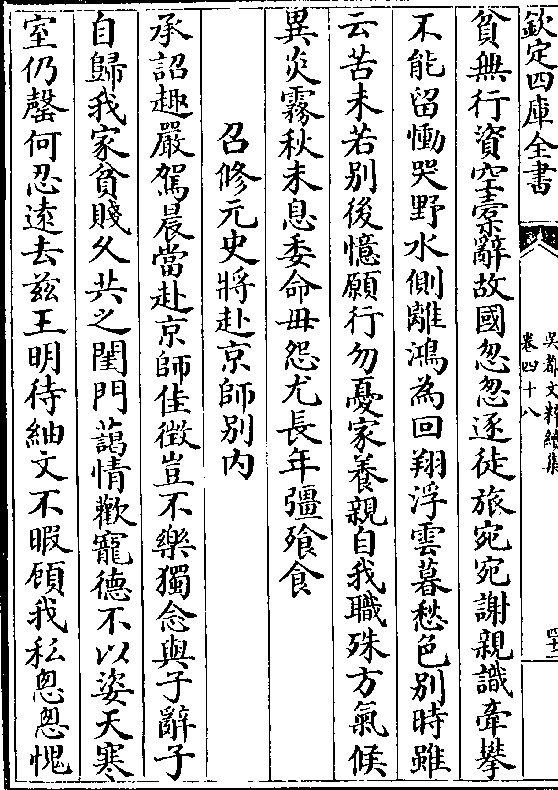 欽定四庫全書
吳都文粹續集
卷四十八
四十二
貧無行資空橐辭故國怱怱逐徒旅宛宛謝親識牽攀
不能留慟哭野水側離鴻為回翔浮雲暮愁色别時雖
云苦未若别後憶願行勿憂家養親自我職殊方氣候
異炎霧秋未息委命毋怨尤長年彊飱食
召修元史將赴京師别内
承詔趣嚴駕晨當赴京師佳徵豈不樂獨念與子辭子
自歸我家貧賤久共之閨門藹情歡寵德不以姿天寒
室仍罄何忍遠去兹王明待紬文不暇顧我私恖恖愧